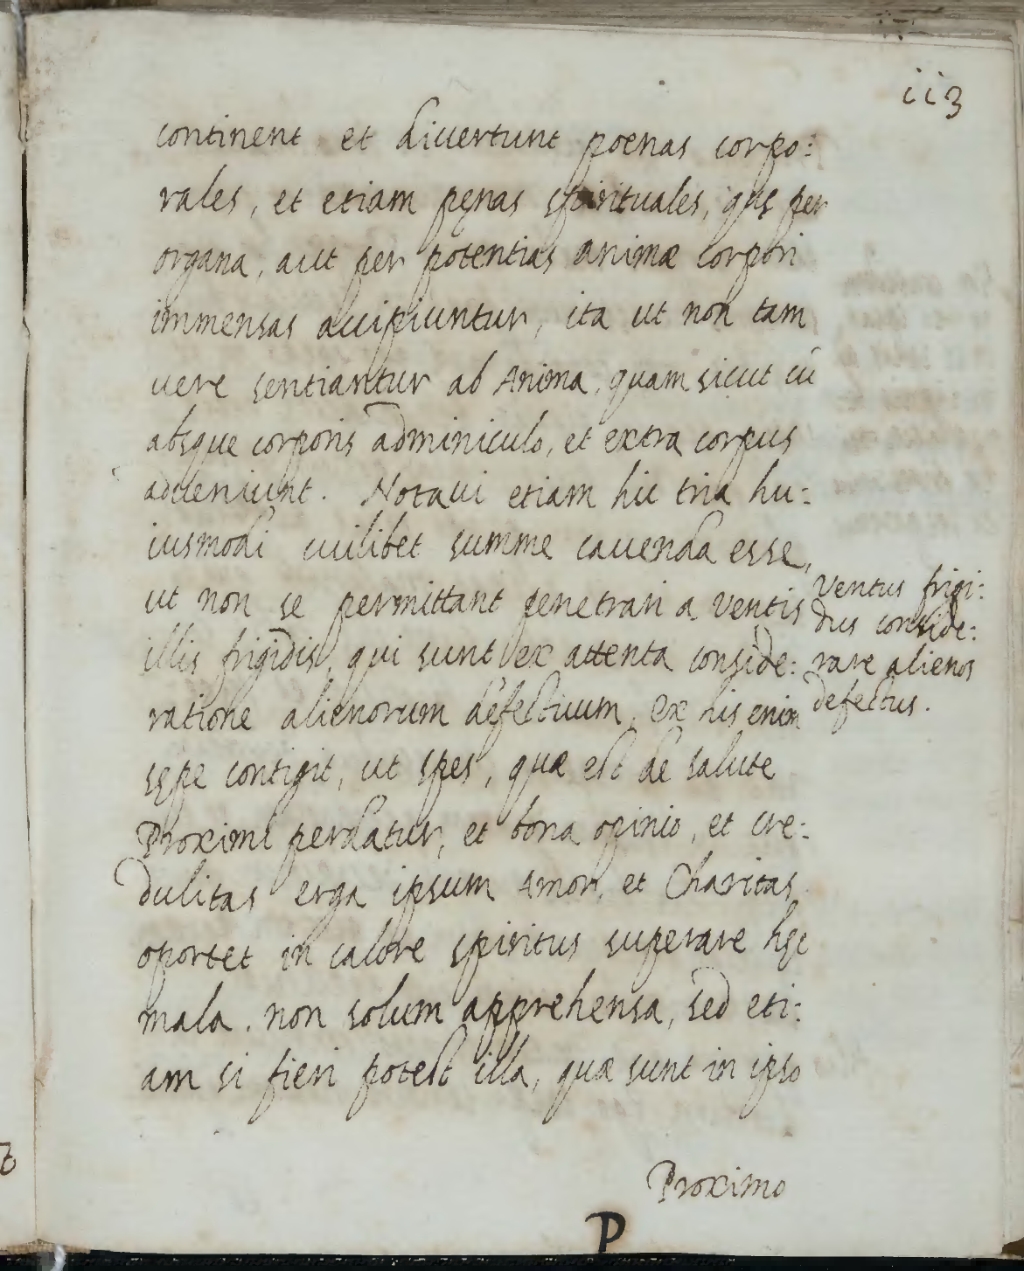 113
continent et diuertunt poenas corpo:
rales, et etiam pęnas spirituales, quę per
organa, aut per potentias animæ corpori
immensas accipiuntur, ita ut non tam
uere sentiantur ab Anima, quam sicut cũ
absque corporis adminiculo, et extra corpus
adueniunt. Notaui etiam hic tria hu:
iusmodi cuilibet summe cauenda esse,
ut non se permittant penetrari a ventis
illis frigidis, qui sunt ex attenta conside:
ratione alienorum defectuum, ex his enim
sępe contigit, ut spes, quæ est de salute
Proximi perdatur, et bona opinio, et cre:
dulitas erga ipsum Amor, et Charitas
oportet in calore spiritus superare hęc
mala. non solum apprehensa, sed eti:
am si fieri potest illa, quæ sunt in ipso
Ventus frigi:
dus conside:
rare alienos
defectus.
Proximo
P